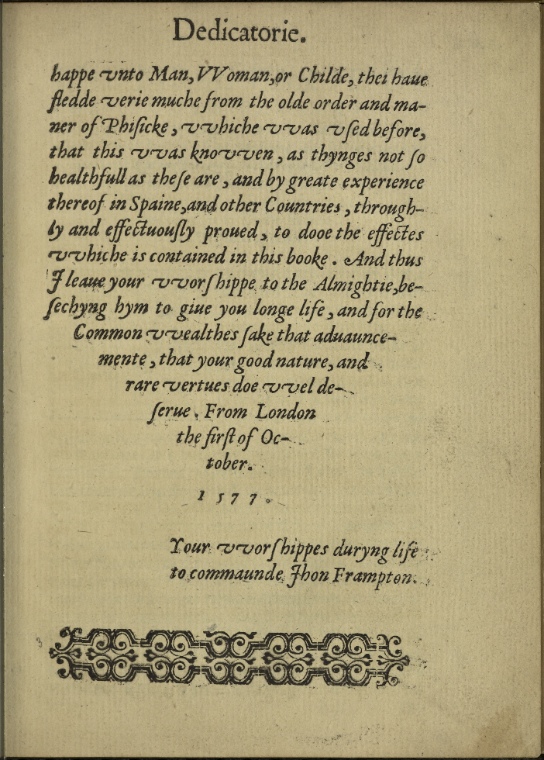 Dedicatorie.
happe vnto Man, VVoman, or Childe, thei haue
fledde verie muche from the olde order and ma-
ner of Phisicke, vvhiche vvas vsed before,
that this vvas knovven, as thynges not so
healthfull as these are, and by greate experience
thereof in Spaine, and other Countries, through-
ly and effectuously proued, to dooe the effectes
vvhiche is contained in this booke. And thus
I leaue your vvorshippe to the Almightie, be-
sechyng hym to giue you longe life, and for the
Common vvealthes sake that aduaunce-
mente, that your good nature, and
rare vertues doe vvel de-
serue. From London
the first of Oc-
tober.
1577.
Your vvorshippes duryng life
to commaunde Jhon Frampton.